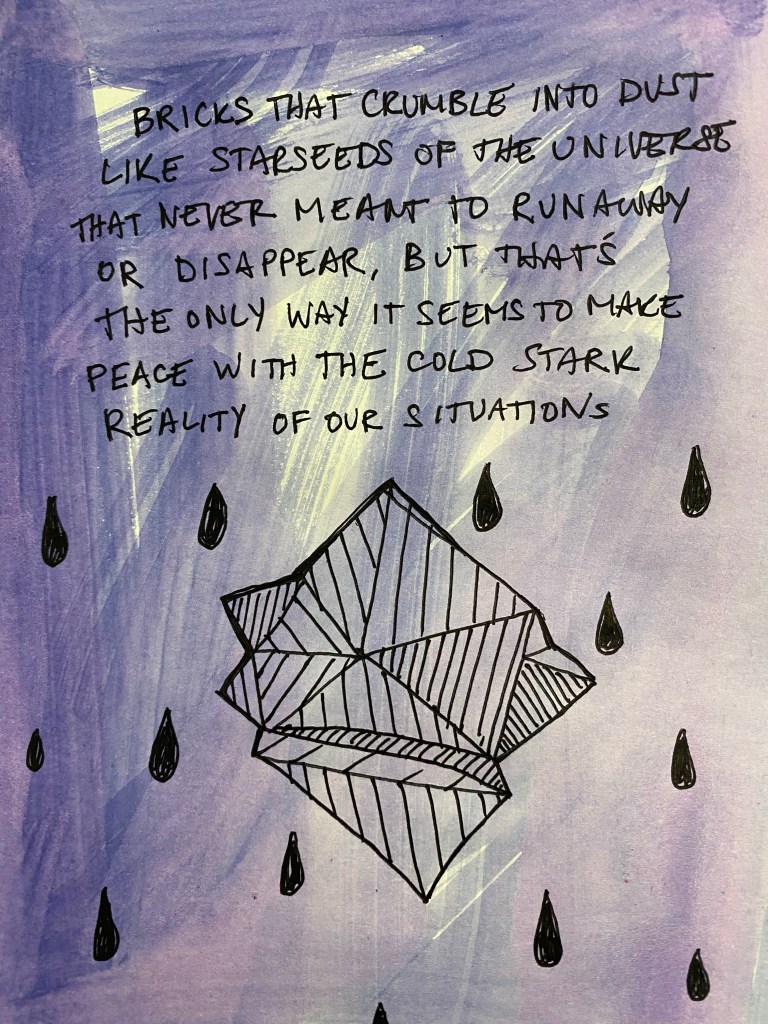 BRICKS THAT CRUMBLE INTO DUST
LIKE STARSEEDS OF THE UNIVERSE
THAT NEVER MEANT TO RUNAWAY
OR DISAPPEAR, BUT THAT'S
THE ONLY WAY IT SEEMS TO MAKE
PEACE WITH THE COLD STARK
REALITY OF OUR SITUATIONS